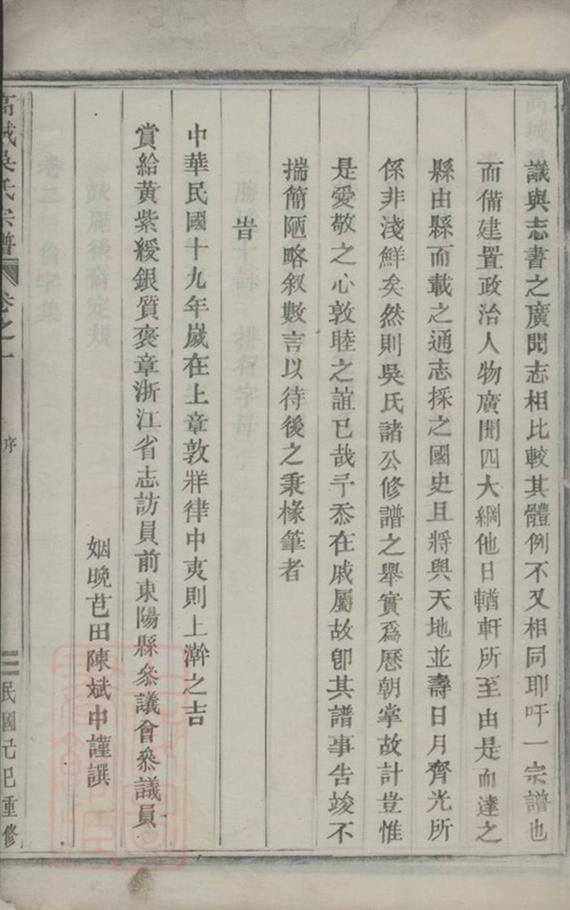 識與志書之廣聞志相比較其體例不又相同耶吁一宗譜也
而備建置政治人物廣聞四大綱他日輶軒所至由是而達之
縣由縣而載之通志採之國史且將與天地並壽日月齊光所
係非淺鮮矣然則吳氏諸公修譜之舉實爲歷朝掌故計豈惟
是愛敬之心敦睦之誼已哉予忝在戚屬故卽其譜事告竣不
揣簡陋略叙數言以待後之秉椽筆者
旹
中華民國十九年嵗在上章敦牂律中夷則上澣之吉
賞給黃紫綬銀質褒章浙江省志訪員前東陽縣叅議會叅議員
姻晚芑田陳斌中謹譔
高城吳氏宗譜 卷之一 序 二 民國己巳重修